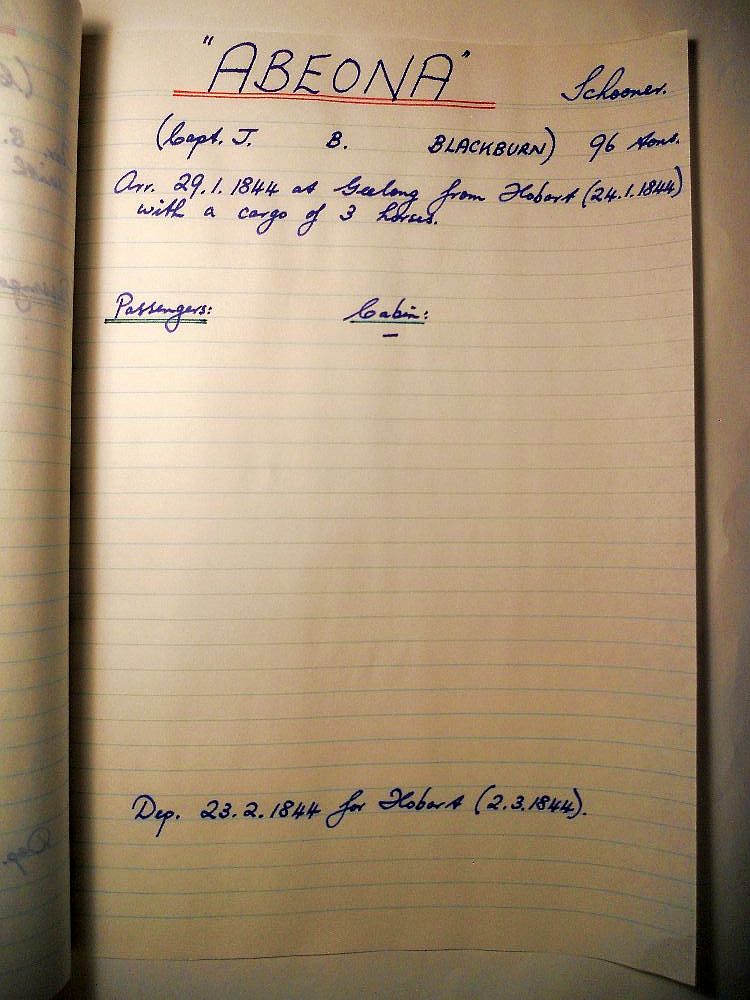 "ABEONA" Schooner.
(Capt. J. B. BLACKBURN) 96 tons.
Arr. 29.1.1844 at Geelong from Hobart (24.1.1844)
with a cargo of 3 horses.
Passengers: Cabin:
–
Dep. 23.2.1844 for Hobart (2.3.1844).